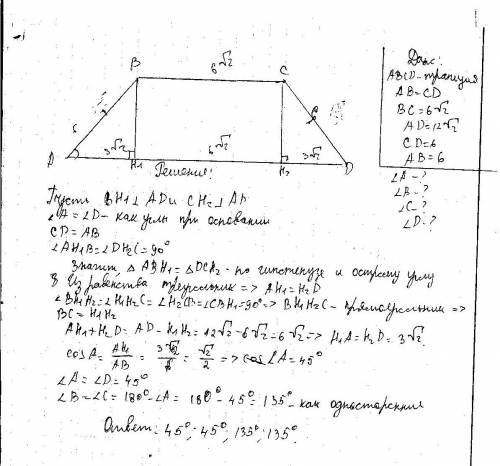 B
6√2
C
6
6
A
3√2
H1
6√2
H2
3√2
D
Дано:
ABCD - трапеция
AB=CD
BC=6√2
AD=12√2
CD=6
AB=6
∠A-?
∠B-?
∠C-?
∠D-?
Решение:
Пусть BH1⊥AD и CH2⊥AD
∠A=∠D- как углы при основании
CD=AB
∠AH1B=∠DH2C=90°
Значит, △ABH1=△DCH2 - по гипотенузе и острому углу
Из равенства треугольник => AH1=H2D
∠BH1H2=∠H1H2C=∠H2CB=∠CBH1=90°=> BH1H2C- прямоугольник =>
BC=H1H2
AH1+H2D=AD-H1H2=12√2-6√2=6√2=> H1A=H2D=3√2
cosA= AH1/AB = 3√2/6 = √2/2 => cos∠A=45°
∠A=∠D=45°
∠B=∠C=180°-∠A=180°-45°=135°- как односторонние
Ответ: 45°; 45°; 135°; 135°.